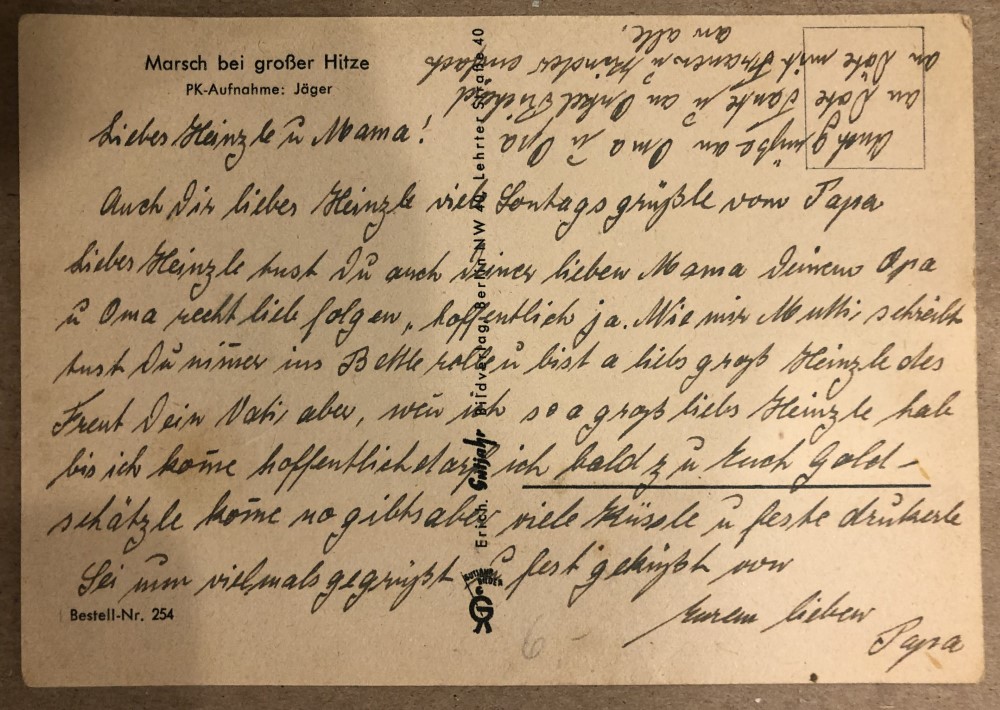 Marsch bei großer Hitze
PK-Aufnahme: Jäger
Liebes Heinzle u Mama!
Auch Dir liebes Heinzle viele Sontagsgrüßle vom Papa
Liebes Heinzle tust Du auch Deiner lieben Mama Deinem Opa
u Oma recht lieb folgen, hoffentlich ja. Wie mir Mutti, schreibt
tust Du nim̄er ins Bettle rolle u bist a liebs groß Heinzle des
Freut Dein Vati, aber, wen ich so a groß liebs Heinzle hab
bis ich kom̄e hoffentlich darf ich bald zu Euch Gold-
schätzle kom̄e no gibts aber viele Küssle u feste drukerle
Sei nun vielmals gegrüßt u fest geküßt von
Eurem lieben
Papa
Auch grüße an Oma u Opa
an Dote Tante u an Onkel
an Dote mit Kinder einfach
an alle.
Erich Gutjahr Bildverlag, Berlin NW 40, Lehrter Straße 40
GUTJAHR BILDER
Bestell-Nr. 254
6 -